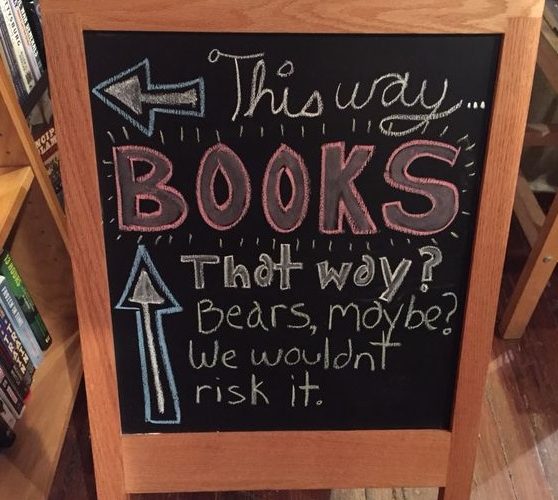 This way...
BOOKS
That way?
Bears, maybe?
We wouldnt
risk it.